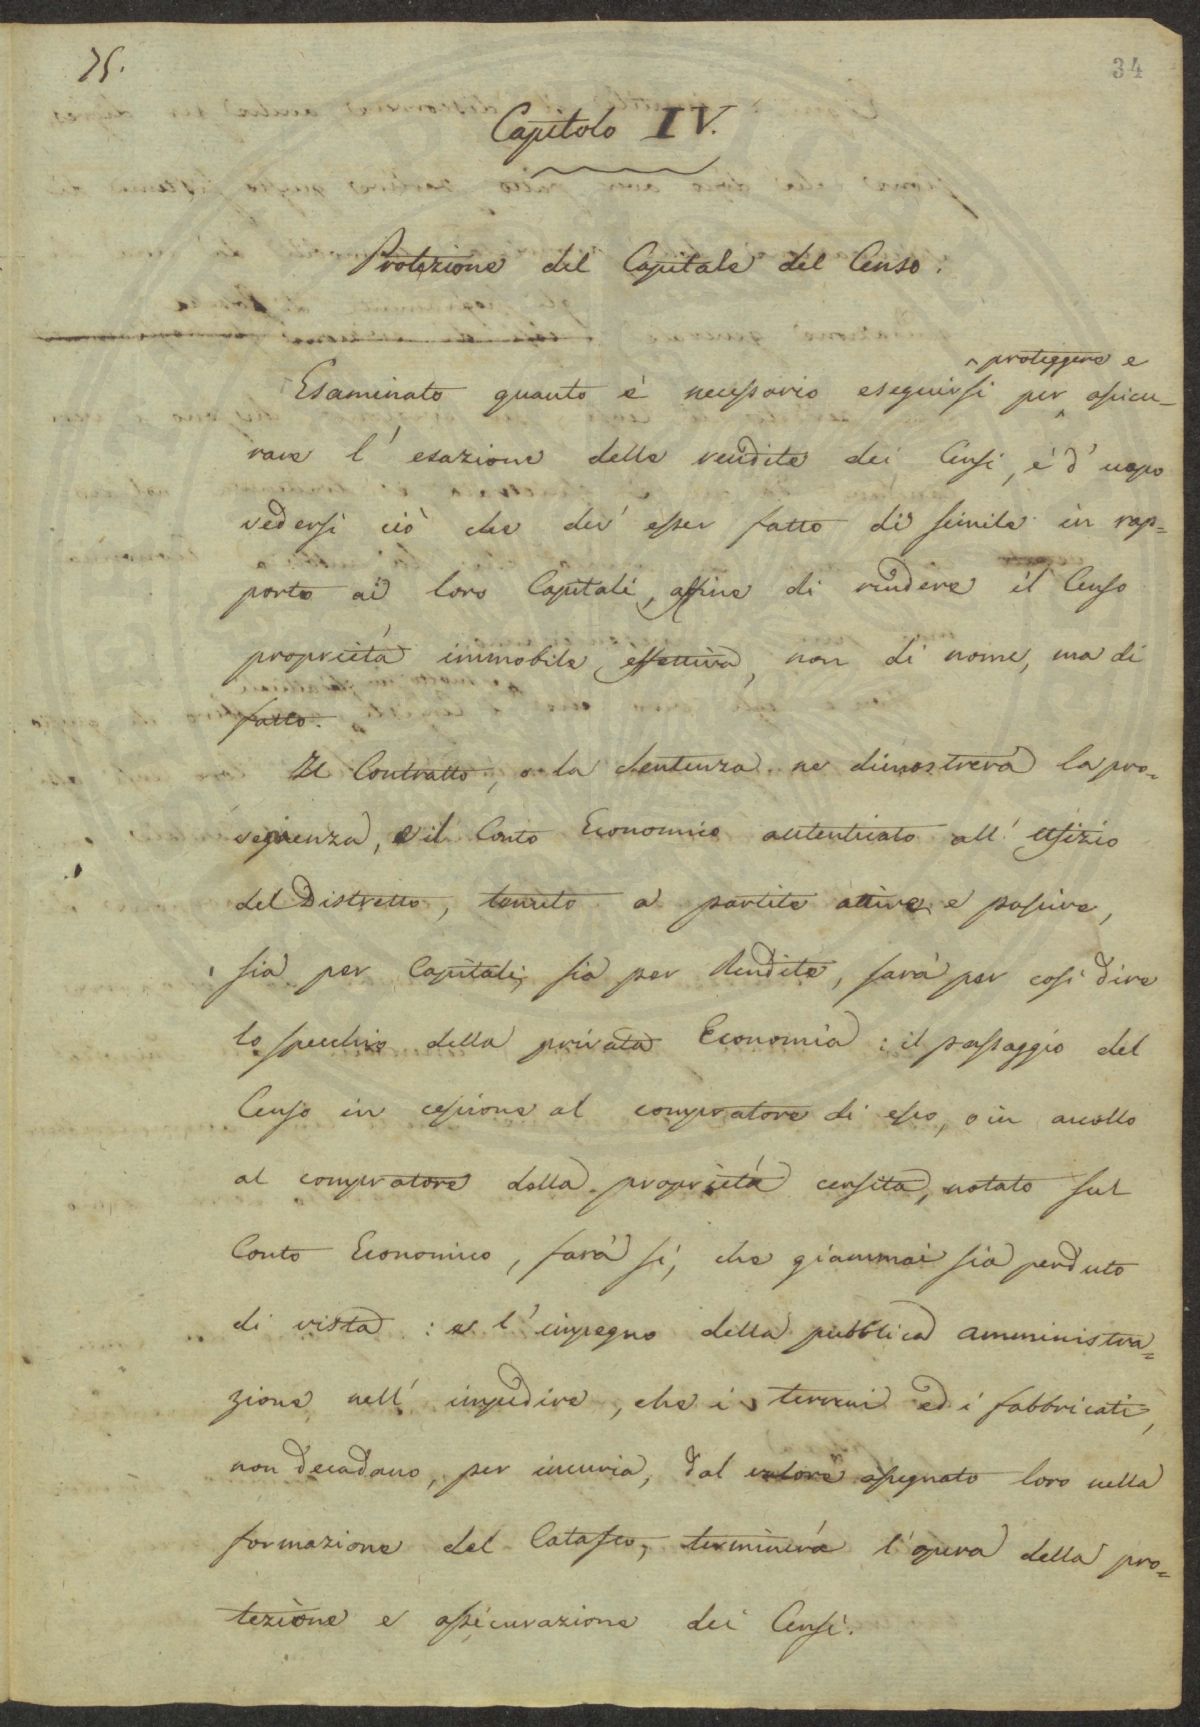 75.
34
Capitolo IV.
Protezione del Capitale del Censo.
proteggere e
Esaminato quanto è necessario eseguirsi per assicu-
rare l'esazione delle rendite dei Censi, è d'uopo
vedersi ciò che dev'esser fatto di simile in rap=
porto ai loro Capitali, affine di rendere il Censo
proprietà immobile effettiva, non di nome, ma di
fatto.
Il Contratto, o la Sentenza ne dimostrerà la pro=
vegnenza, e il Conto Economico autenticato all'Uffizio
del Distretto, tenuto a partite attive e passive,
sia per Capitali, sia per Rendite, sarà per così dire
lo specchio della privata Economia: il passaggio del
Censo in cessione al compratore di esso, o in accollo
al compratore della proprietà censita, notato sul
Conto Economico, farà sì, che giammai sia perduto
di vista: e l'impegno della pubblica amministra=
zione nell'impedire, che i terreni ed i fabbricati,
non decadano, per incuria, dal valore assegnato loro nella
formazione del Catasto, terminerà l'opera della pro=
tezione e assicurazione dei Censi.